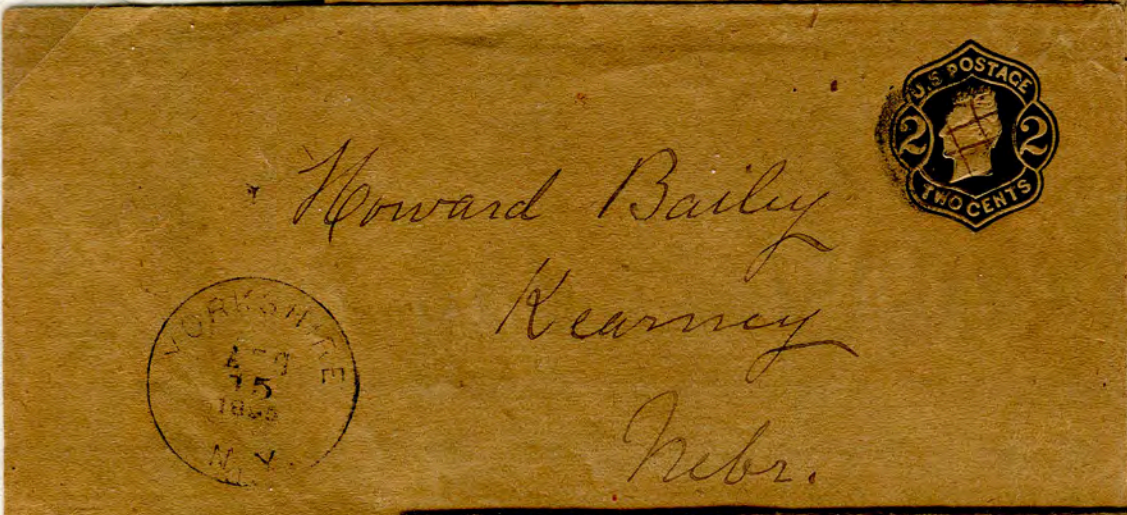 U.S. POSTAGE
2 2
TWO CENTS
Howard Bailey
Kearney
Nebr.
YORKSHIRE
15
N.Y.